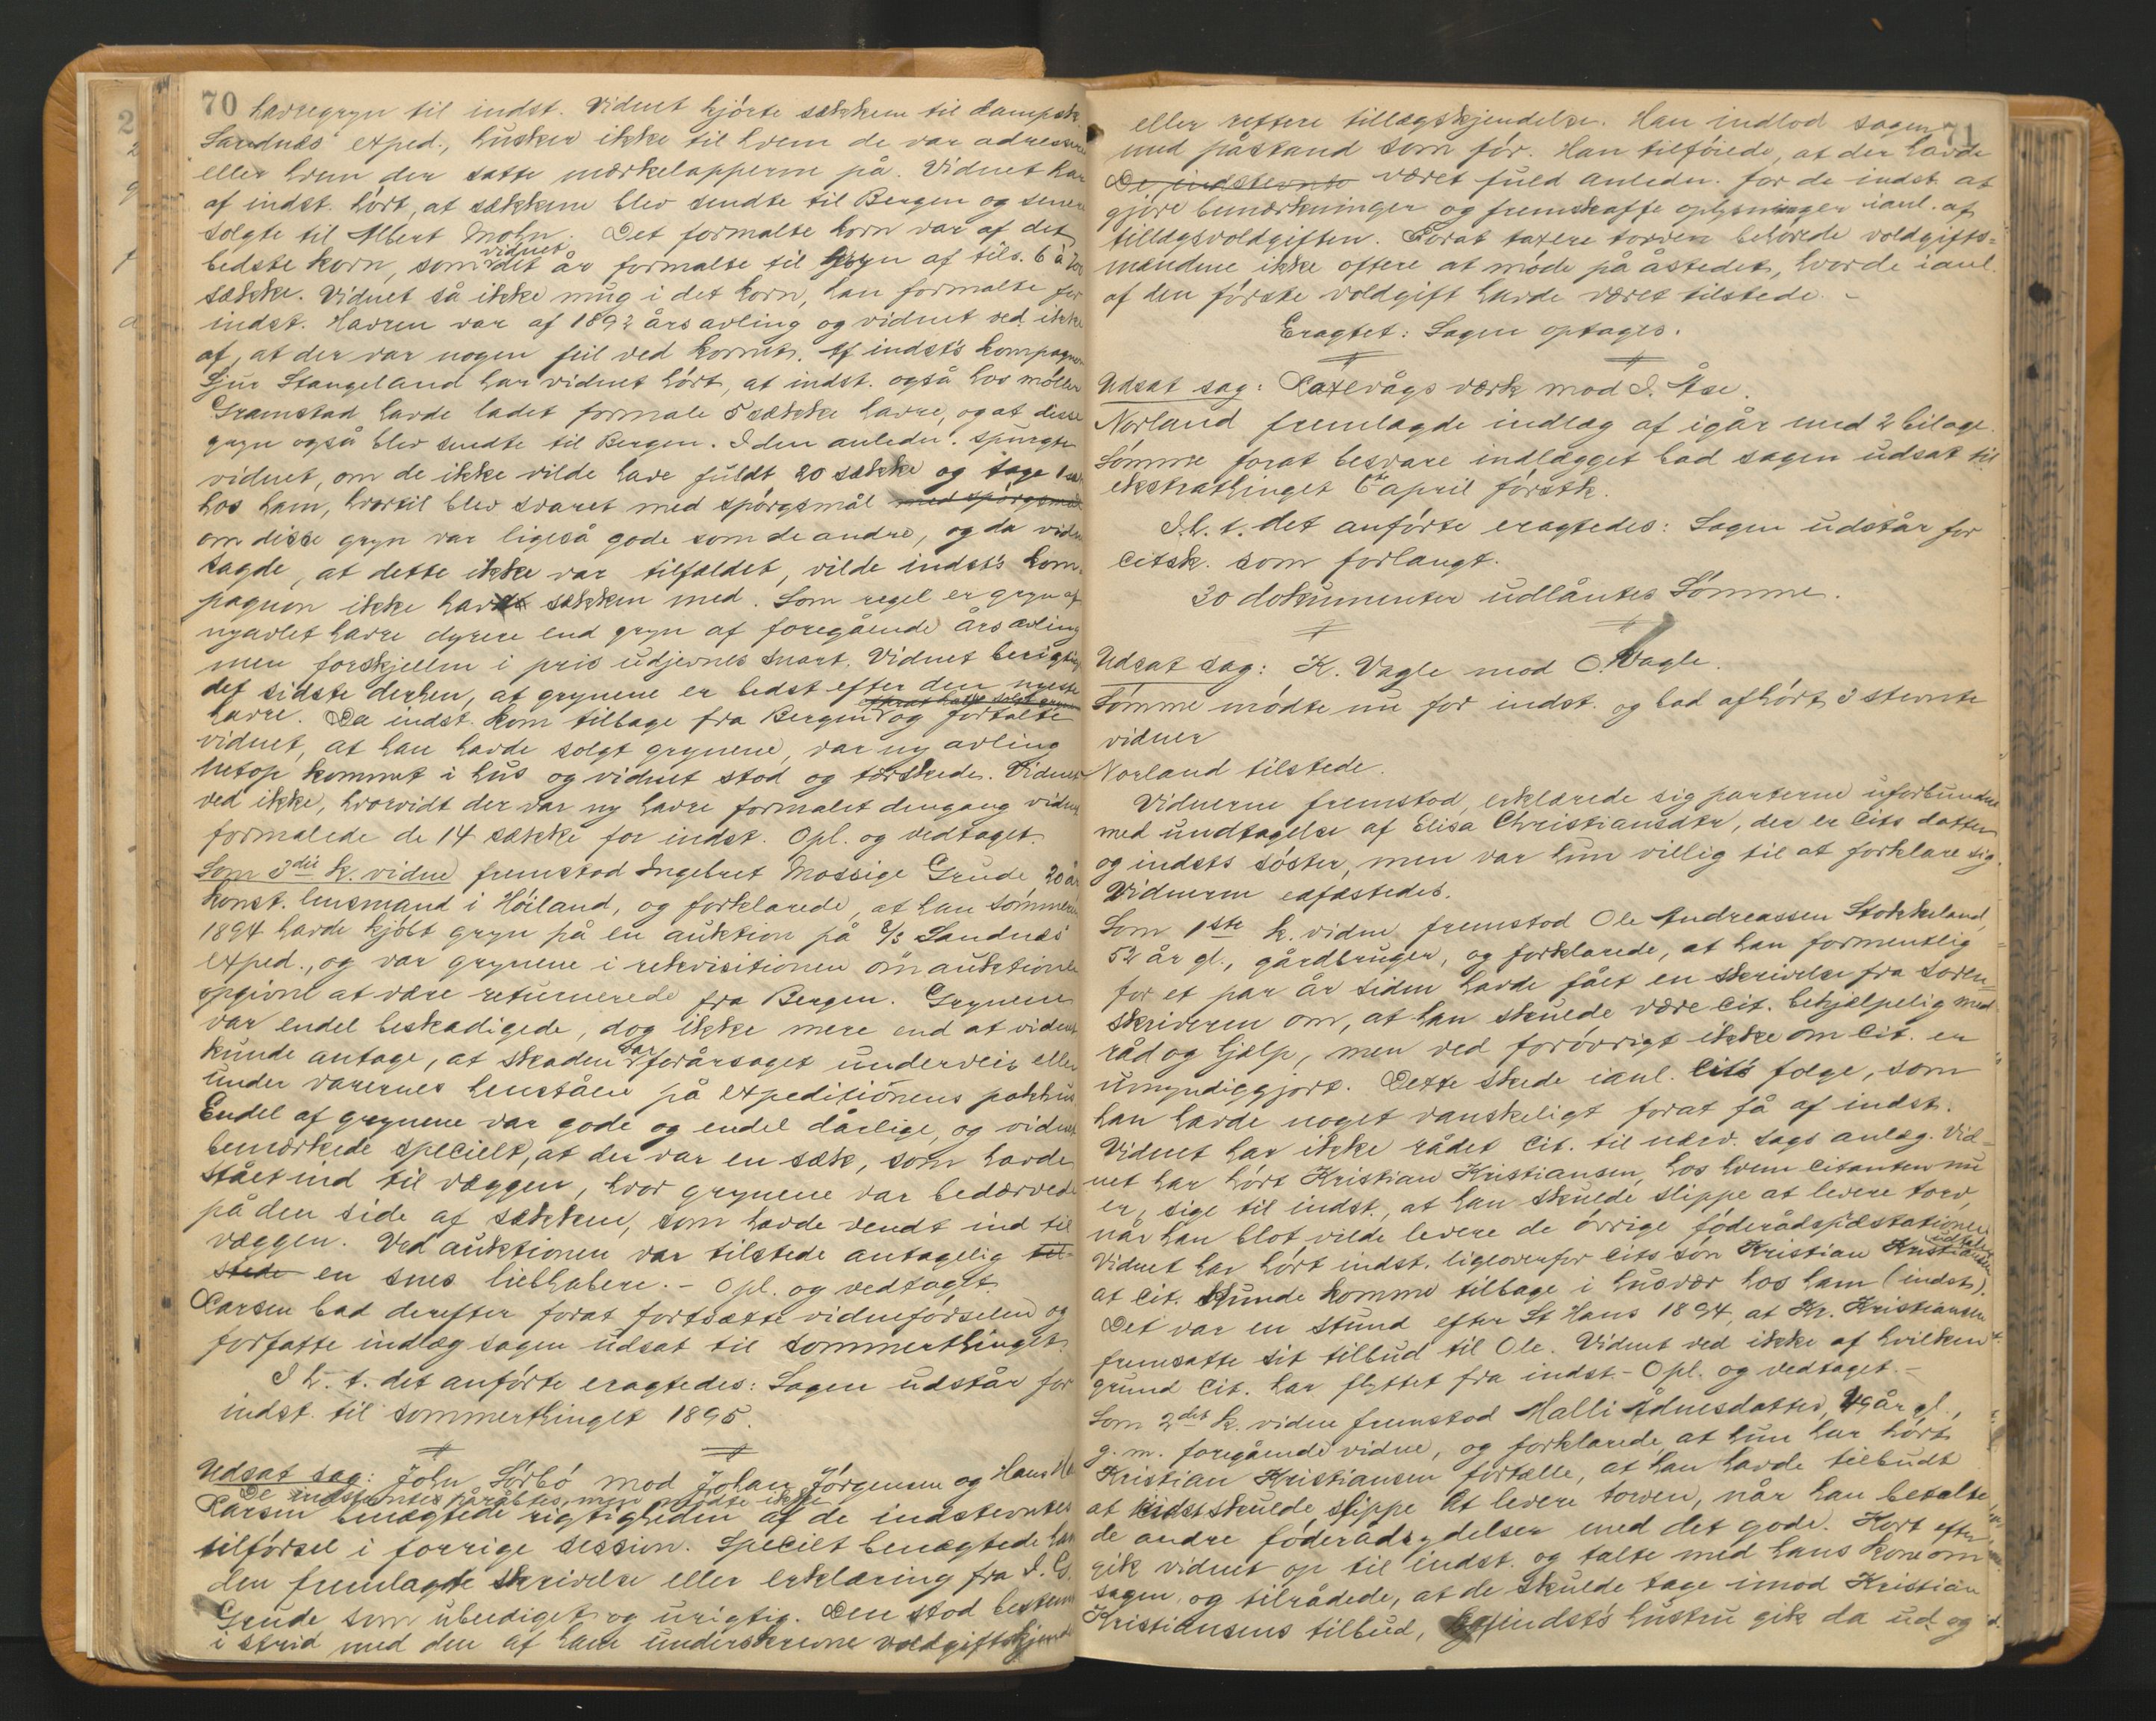 70
havregryn til indst. Vidnet kjørte sækkene til dampsk.
Sandnæs' exped., husker ikke til hvem de var adresseret
eller hvem der satte mærkelapperne på. Vidnet har
af indst. hørt, at sækkene blev sendte til Bergen og senere
solgte til Albert Mohn. Det formalte korn var af det
bedste korn, som vidnet det år formalte til gryn af tils. 6 à 700
sække. Vidnet så ikke mug i det korn, han formalte for
indst. Havren var af 1892 års avling og vidnet ved ikke
af, at der var nogen feil ved kornet. Af indst's kompagnon
Sjur Stangeland har vidnet hørt, at indst. også hos møller
Gramstad havde ladet formale 5 sække havre, og at disse
gryn også blev sendte til Bergen. I den anledn. spurgte
vidnet, om de ikke vilde have fuldt 20 sække og tage 1 sæk
hos ham, hvortil blev svaret med spørgsmål med spørgsmål
om disse gryn var ligeså gode som de andre, og da vidnet
sagde, at dette ikke var tilfældet, vilde indst's kom-
pagnon ikke have sækken med. Som regel er gryn af
nyavlet havre dyrere end gryn af foregående års avling
men forskjellen i pris udjevnes snart. Vidnet berigtig.
det sidste derhen, at grynene er bedst efter den nyeste
havre. Da indst. kom tilbage fra Bergen og fortalte
vidnet, at han havde solgt grynene, var ny avling
netop kommet i hus og vidnet stod og tærskede. Vidnet
ved ikke, hvorvidt der var ny havre formalet dengang vidnet
formalede de 14 sække for indst. Opl. og vedtaget.
Som 3die k. vidne fremstod Ingebret Mossige Grude, 20 år
konst. lensmand i Høiland, og forklarede, at han sommeren
1894 havde kjøbt gryn på en auktion på D/S Sandnæs'
exped., og var grynene i rekvisitionen om auktionen
opgivne at være returnerede fra Bergen. Grynene
var endel beskadigede, dog ikke mere end at vidnet
kunde antage, at skaden var forårsaget underveis eller
under varernes henståen på expeditionens pakhus
Endel af grynene var gode og endel dårlige, og vidnet
bemærkede specielt, at der var en sæk, som havde
stået ind til væggen, hvor grynene var bedærvede
på den side af sækken, som havde vendt ind til
væggen. Ved auktionen var tilstede antagelig til-
stede en snes liebhabere. - Opl. og vedtaget.
Larsen bad derefter forat fortsætte vidneførselen og
forfatte indlæg sagen udsat til sommerthinget
I h. t. det anførte eragtedes: Sagen udstår for
indst. til sommerthinget 1895.
Udsat sag: John Sørbø mod Johan Jørgensen og Hans
De indstevntes påråbtes, men mødte ikke
Larsen benægtede rigtigheden af de indstevntes
tilførsel i forrige session. Specielt benægtede han
den fremlagte skrivelse eller erklæring fra I. G.
Grude som ubeediget og urigtig. Den stod bestemt
i strid med den af ham underskrevne voldgiftskjend
71
eller rettere tillægskjendelse. Han indlod sagen
med påstand som før. Han tilføiede, at der havde
De indstevnte været fuld anledn. for de indst. at
gjøre bemærkninger og fremskaffe oplysninger ianl. af
tillægsvoldgiften. Forat taxere torven behøvede voldgifts-
mændene ikke oftere at møde på åstedet, hvor de ianl.
af den første voldgift havde været tilstede. -
Eragtet: Sagen optages.
Udsat sag: Laxevågs værk mod I. Åse.
Norland fremlagde indlæg af igår med 2 bilage.
Sømme forat besvare indlægget bad sagen udsat til
ekstrathinget 6te april førstk.
I. h. t. det anførte eragtedes: Sagen udstår for
citsk. som forlangt.
30 dokumenter udlåntes Sømme.
Udsat sag: K. Vagle mod O. Vagle.
Sømme mødte nu for indst. og bad afhørt 3 stevnte
vidner
Norland tilstede.
Vidnerne fremstod, erklærede sig parterne uforbundne
med undtagelse af Elisa Christiansdtr, der er cits datter
og indsts søster, men var hun villig til at forklare sig.
Vidnerne edfæstedes.
Som 1ste k. vidne fremstod Ole Andreassen Stokkeland,
52 år gl., gårdbruger, og forklarede, at han formentlig
for et par år siden havde fået en skrivelse fra soren-
skriveren om, at han skulde være cit. behjælpelig med
råd og hjælp, men ved forøvrigt ikke om cit. er
umyndiggjort. Dette skede ianl. cits følge, som
han havde noget vanskeligt forat få af indst.
Vidnet har ikke rådet cit. til nærv. sags anlæg. Vid-
net har hørt Kristian Kristiansen, hos hvem citanten nu
er, sige til indst., at han skulde slippe at levere torv,
når han blot vilde levere de øvrige føderådspræstationer
Vidnet har hørt indst. ligeoverfor cits søn Kristian Kristiansen udtale
at cit. kunde komme tilbage i husvær hos ham (indst).
Det var en stund efter St Hans 1894, at Kr. Kristiansen
fremsatte sit tilbud til Ole. Vidnet ved ikke af hvilken
grund cit. har flyttet fra indst. - Opl. og vedtaget. -
Som 2det k. vidne fremstod Malli Ådnesdatter, 49 år gl.,
g. m. foregående vidne, og forklarede, at hun har hørt
Kristian Kristiansen fortælle, at han havde tilbudt
at indst skulde slippe at levere torven, når han betalte
de andre føderådsydelser med det gode. Kort efter
gik vidnet op til indst. og talte med hans kone om
sagen og tilrådede, at de skulde tage imod Kristian
Kristiansens tilbud, indst's hustru gik da ud og